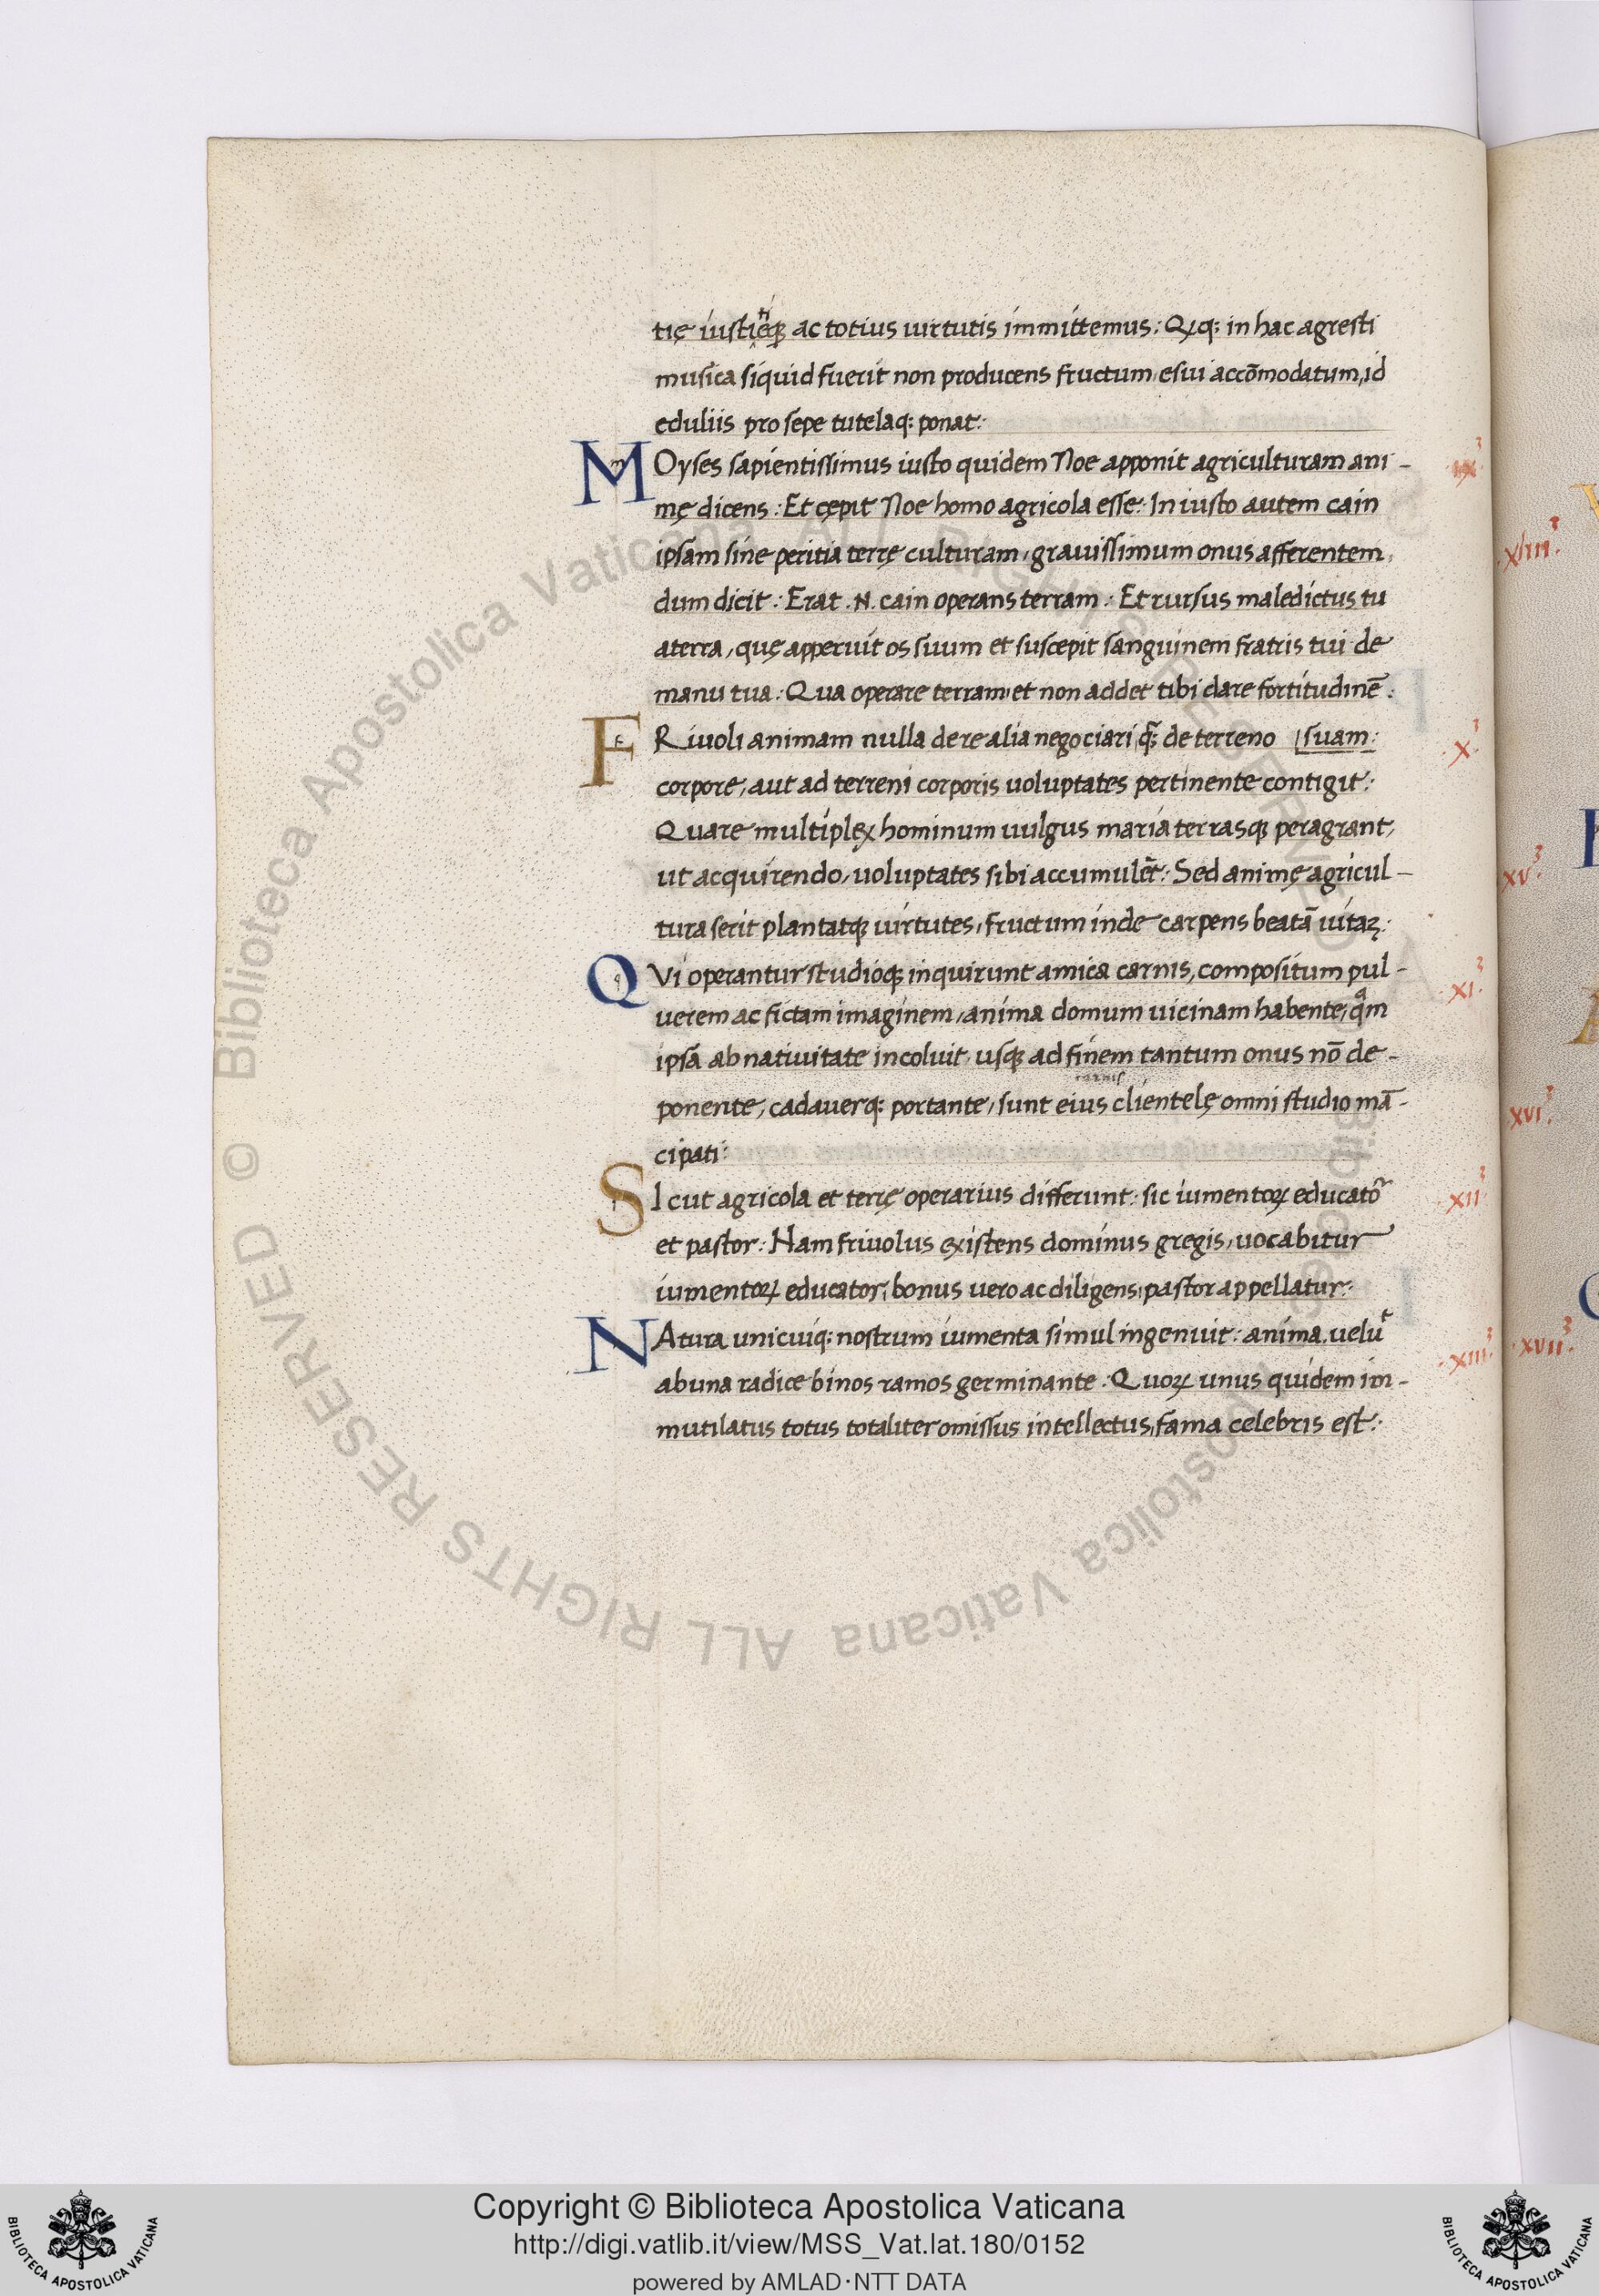 tię iustitięq; ac totius uirtutis immittemus: Qꝫq: in hac agresti
musica siquid fuerit non producens fructum esui accōmodatum, id
eduliis pro sepe tutelaq: ponat:
MOyses sapientissimus iusto quidem Noe apponit agriculturam ani- ·ix·
mę dicens: Et cępit Noe homo agricola esse: In iusto autem cain
ipsam sine peritia terrę culturam, grauissimum onus afferentem,
dum dicit: Erat .N. cain operans terram: Et rursus maledictus tu
aterra, quę apperuit os suum et suscepit sanguinem fratris tui de
manu tua: Qua operare terram, et non addet tibi dare fortitudinē:
FRiuoli animam nulla de re alia negociari q̃: de terreno suam: ·x·
corpore, aut ad terreni corporis uoluptates pertinente contigit:
Quare multiplex hominum uulgus maria terrasq; peragrant,
ut acquirendo, uoluptates sibi accumulēt: Sed animę agricul-
tura serit plantatq; uirtutes, fructum inde carpens beatā uitaꝫ:
QVi operantur studioq; inquirunt amica carnis, compositum pul- ·xi·
uerem ac fictam imaginem, anima domum uicinam habente, qᵃm
ipsā ab natiuitate incoluit, usq; ad finem tantum onus nō de-
carnis
ponente, cadauerq: portante, sunt eius clientelę omni studio mā-
cipati:
SIcut agricola et terrę operarius differunt: sic iumentoꝝ educator ·xii·
et pastor: Nam friuolus existens dominus gregis, uocabitur
iumentoꝝ educator, bonus uero ac diligens, pastor appellatur:
NAtura unicuiq: nostrum iumenta simul ingenuit: anima uelut ·xiii·
ab una radice binos ramos germinante: Quoꝝ unus quidem im-
mutilatus totus totaliter omissus intellectus, fama celebris est:
·xiiii·
·xv·
·xvi·
·xvii·
© Biblioteca Apostolica Vaticana ALL RIGHTS RESERVED
Copyright © Biblioteca Apostolica Vaticana
http://digi.vatlib.it/view/MSS_Vat.lat.180/0152
powered by AMLAD·NTT DATA
BIBLIOTECA APOSTOLICA VATICANA
BIBLIOTECA APOSTOLICA VATICANA